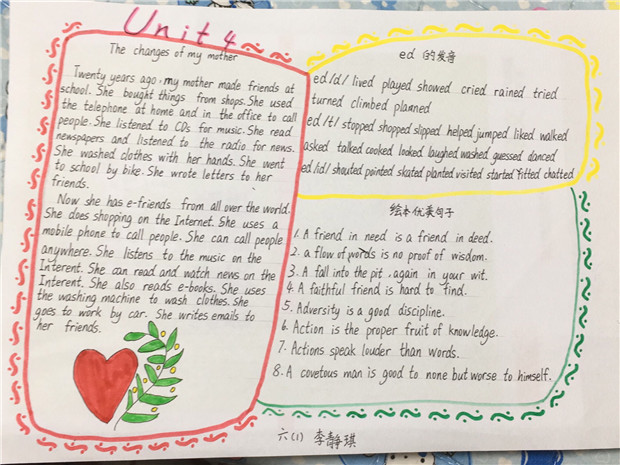 Unit 4
The changes of my mother
Twenty years ago, my mother made friends at
school. She bought things from shops. She used
the telephone at home and in the office to call
people. She listened to CDs for music. She read
newspapers and listened to the radio for news.
She washed clothes with her hands. She went
to school by bike. She wrote letters to her
friends.
Now she has e-friends from all over the world.
She does shopping on the Internet. She uses a
mobile phone to call people. She can call people
anywhere. She listens to the music on the
Interent. She can read and watch news on the
Interent. She also reads e-books. She uses
the washing machine to wash clothes. She
goes to work by car. She writes emails to
her friends.
ed 的发音
ed /d/ lived played showed cried rained tried
turned climbed planned
ed /t/ stopped shopped slipped helped jumped liked walked
asked talked cooked looked laughed washed guessed danced
ed /id/ shouted pointed skated planted visited started fitted chatted
绘本优美句子
1. A friend in need is a friend in deed.
2. a flow of words is no proof of wisdom.
3. A fall into the pit, again in your wit.
4. A faithful friend is hard to find.
5. Adversity is a good discipline.
6. Action is the proper fruit of knowledge.
7. Actions speak louder than words.
8. A covetous man is good to none but worse to himself.
六(1) 李静琪